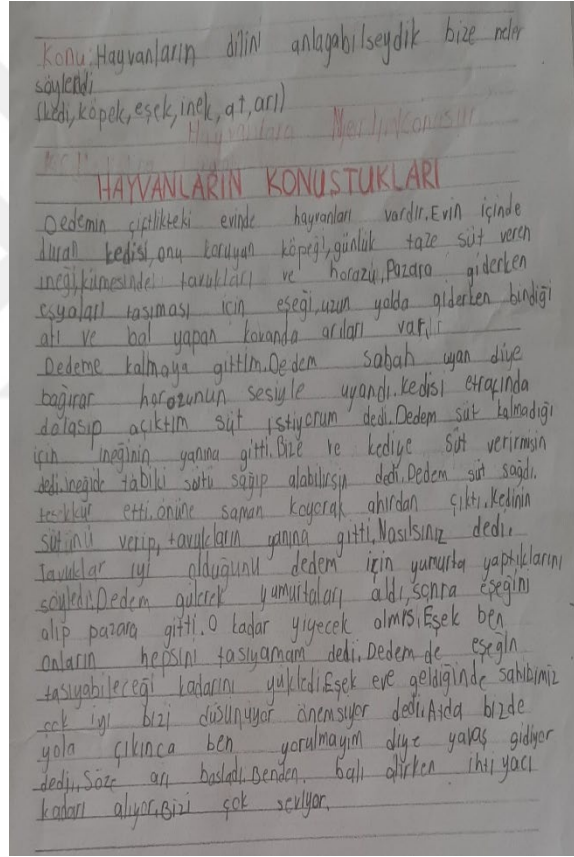 Konu: Hayvanların dilini anlagabilseydik bize neler
söylendi
(kedi, köpek, eşek, inek, at, arı)
HAYVANLARIN KONUSTUKLARI
Dedemin çiftlikteki evinde hayvanları vardır. Evin içinde
duran kedisi, onu koruyan köpeği, günlük taze süt veren
ineği, kümesindeki tavukları ve horozu, Pazara giderken
eşyaları tasıması için eşeği, uzun yolda giderken bindiği
atı ve bal yapan kovanda arıları vardır
Dedeme kalmaya gittim. Dedem sabah uyan diye
bağırar horozunun sesiyle uyandı. Kedisi etrafında
dolasıp açıktım süt istiyorum dedi. Dedem süt kalmadığı
için ineğinin yanına gitti. Bize ve kediye süt verirmisin
dedi. ineğide tabiki sütü sağıp alabilirsin dedi. Dedem süt sağdı.
tesekkür etti. önüne saman koyarak ahırdan çıktı. Kedinin
sütünü verip, tavukların yanına gitti. Nasılsınız dedi.
Tavuklar iyi olduğunu dedem için yumurta yaptıklarını
söyledi. Dedem gülerek yumurtaları aldı, sonra eşeğini
alıp pazara gitti. O kadar yiyecek almıs, Eşek ben
onların hepsini tasıyamam dedi. Dedem de eşeğin
tasıyabileceği kadarını yükledi. Eşek eve geldiğinde sahibimiz
çok iyi bizi düsünüyor önemsiyor dedi. Atda bizde
yola çıkınca ben yorulmayım diye yavaş gidiyor
dedi. Söze arı basladı. Benden balı alırken ihtiyacı
kadarı alıyor. Bizi çok seviyor.